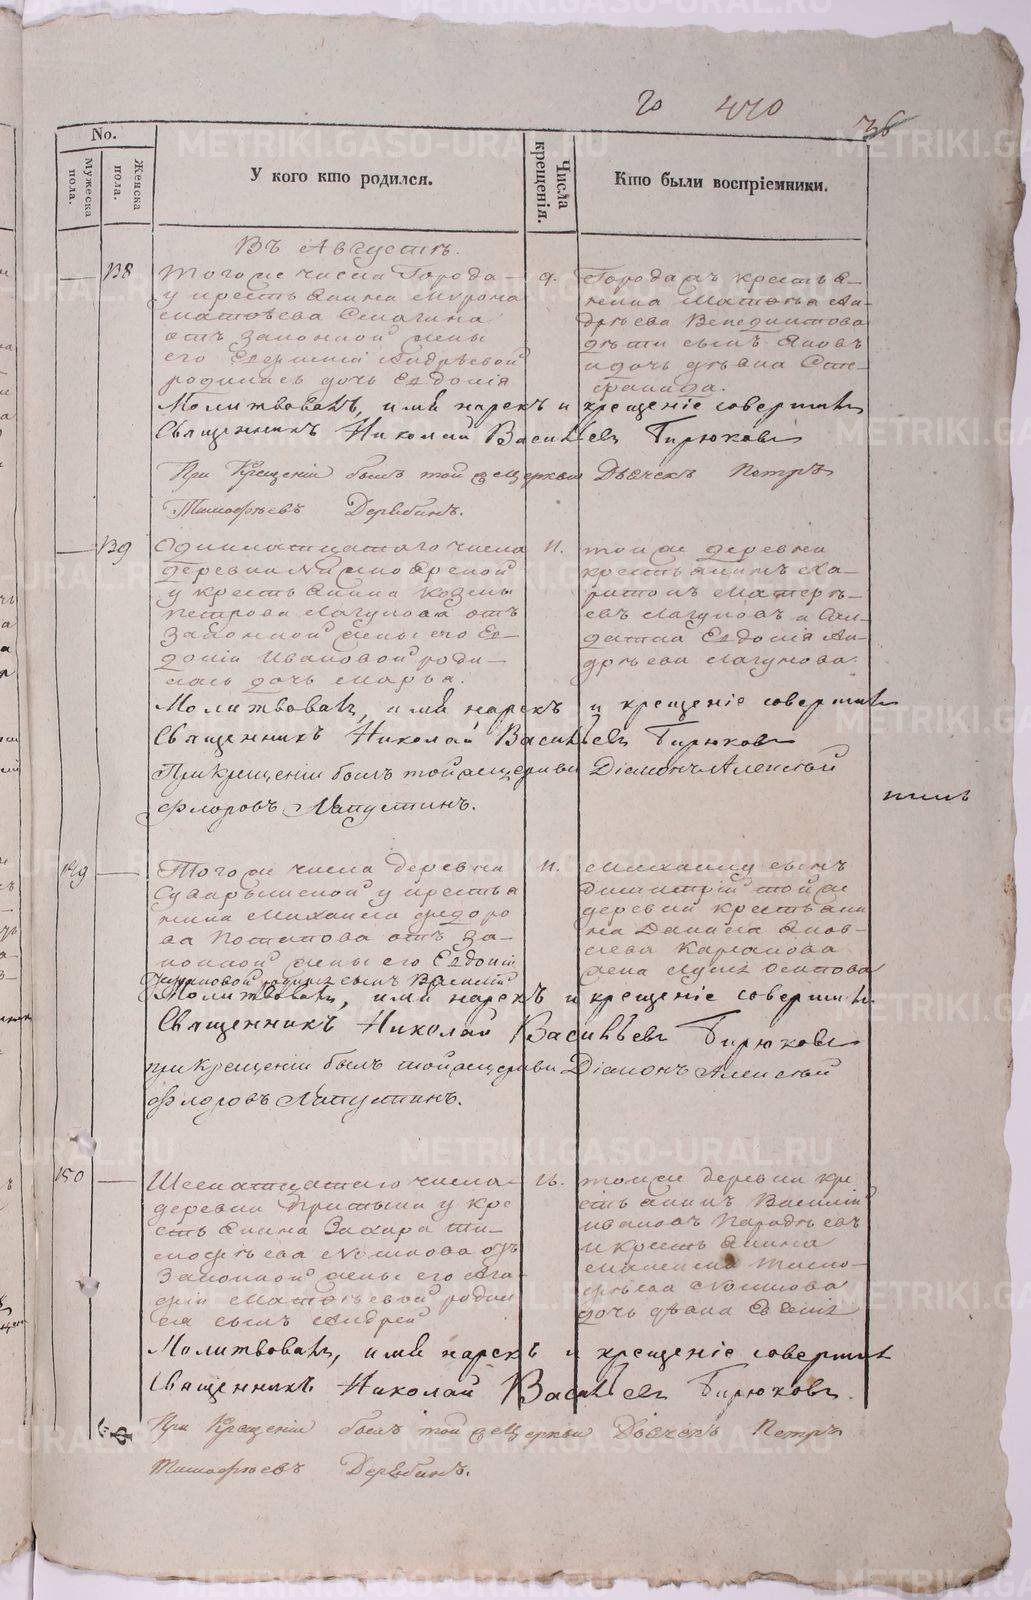 го 470
36
No.
Мужеска пола.
Женска пола.
У кого кто родился.
Числа крещенія.
Кто были воспріемники.
Въ Августѣ.
138
Того же числа Города
у крестьянина Мирона
Матвѣева Смагина
отъ законной жены
его Андрѣевой
родилась дочь Евдокія
9.
Города ... крестья-
нина Матвѣя Ан-
дрѣева Венедиктова
дѣти сынъ Яковъ
и дочь дѣвка Сте-
фанида.
Молитвовалъ, имя нарекъ и крещеніе совершилъ
Священникъ Николай Васильевъ Бирюковъ
При Крещеніи былъ той же Церкви Дьячекъ Петръ
Тимофѣевъ Дерябинъ.
139
Одиннатцатаго числа
деревни
у крестьянина Козмы
Петрова Лагунова отъ
законной жены его Ев-
докіи Ивановой роди-
лась дочь Марья.
11.
той же деревни
крестьянинъ Ха-
ритонъ Матвѣ-
евъ Лагуновъ и Сол-
датка Евдокія Ан-
дрѣева Лагунова.
Молитвовалъ, имя нарекъ и крещеніе совершилъ
Священникъ Николай Васильевъ Бирюковъ
При крещеніи былъ той же церкви Діаконъ Алексѣй
Флоровъ Лапустинъ.
149
Того же числа деревни
у крестья
нина Михаила Федоро
ва Потапова отъ за-
конной жены его Евдокіи
родился сынъ Василій
11.
Михаилу сынъ
Дмитрій той же
деревни крестьяни
на Данила Яков-
лева
жена Осипова
Молитвовалъ, имя нарекъ и крещеніе совершилъ
Священникъ Николай Васильевъ Бирюковъ
при крещеніи былъ той же церкви Діаконъ Алексѣй
Флоровъ Лапустинъ.
150
Шеснатцатаго числа
деревни Притыки у кре
стьянина Захара Ти-
мофѣева отъ
законной жены его Ага-
фіи Матвѣевой родил
ся сынъ Андрей
16.
той же деревни кре
стьянинъ Василій
Ивановъ
и крестьянина
Тимо-
фѣева
дочь дѣвка Евгенія
Молитвовалъ, имя нарекъ и крещеніе совершилъ
Священникъ Николай Васильевъ Бирюковъ.
При Крещеніи былъ той же Церкви Дьячекъ Петръ
Тимофѣевъ Дерябинъ.
METRIKI.GASO-URAL.RU